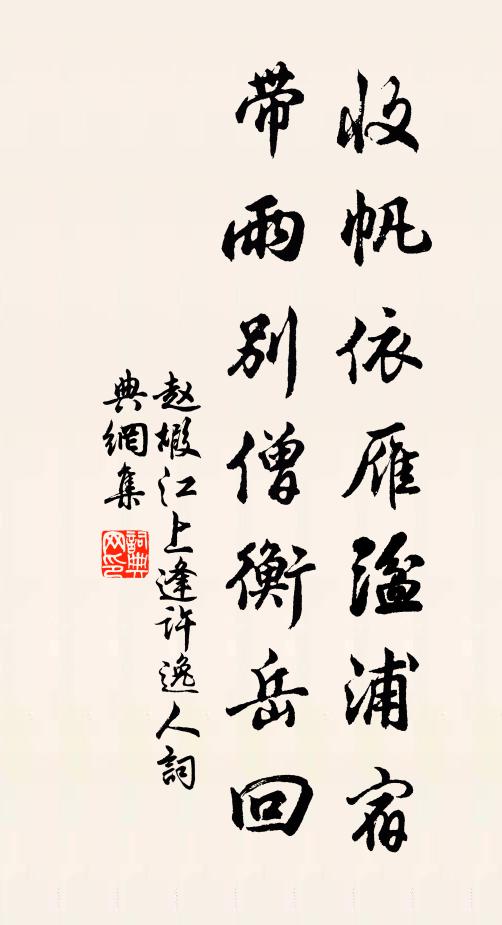 收帆依雁湓浦宿
带雨別僧衡岳回
赵嘏江上逢许逸人詞
典網集
詞典
网印